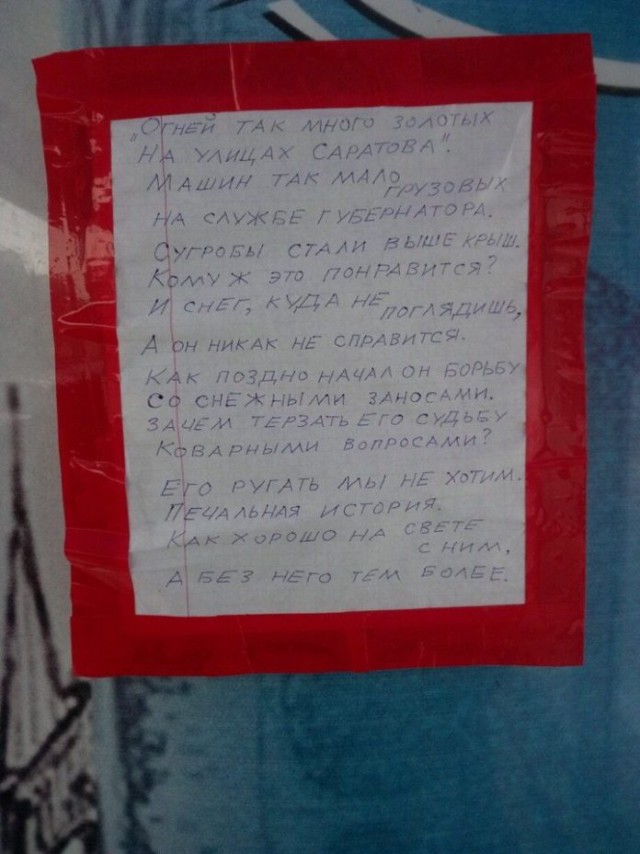 „Огней так много золотых
На улицах Саратова".
Машин так мало грузовых
на службе губернатора.
Сугробы стали выше крыш.
Кому ж это понравится?
И снег, куда не поглядишь,
А он никак не справится.
Как поздно начал он борьбу
со снежными заносами.
Зачем терзать его судьбу
Коварными вопросами?
Его ругать мы не хотим.
Печальная история.
Как хорошо на свете
с ним,
А без него тем более.